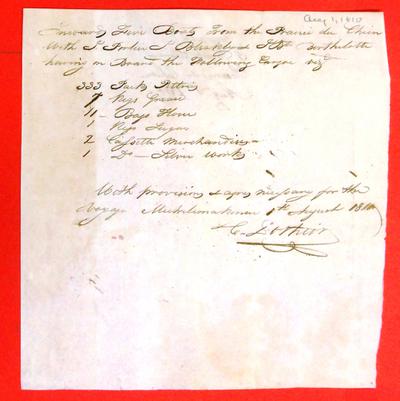 Aug 1, 1810
Inwards Five Boats from the Prairie du Chien
With Js Blakely & Bte Berthelotte
having on Board the Following Cargo vizt
333 Packs Peltries
9 Kegs Grease
11 - Bags Flour
1 Kegs Sugar
2 Cassetts Merchandise
1 Do - Silver works
With provisions & agrs necessary for the
Voyage Michilimakinac 1st August 1810
C. Lothier